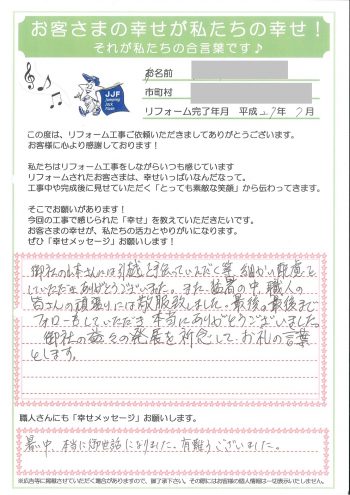 お客さまの幸せが私たちの幸せ！
それが私たちの合言葉です♪
JJF
Jumping
Jack
Flash
お名前
市町村
リフォーム完了年月 平成27年7月
この度は、リフォーム工事ご依頼いただきましてありがとうございます。
お客様に心より感謝しております！
私たちはリフォーム工事をしながらいつも感じています
リフォームされたお客さまは、幸せいっぱいなんだなって。
工事中や完成後に見せていただく「とっても素敵な笑顔」から伝わってきます。
そこでお願いがあります！
今回の工事で感じられた「幸せ」を教えていただきたいです。
お客さまの幸せが、私たちの活力とやりがいになります。
ぜひ「幸せメッセージ」お願いします！
御社の山本さんには引越を手伝っていただく等、細かい配慮を
していただきありがとうございました。また、猛暑の中、職人の
皆さんの頑張りには敬服致しました。最後の最後まで
フォローをしていただき本当にありがとうございました。
御社の益々の発展を祈念して、お礼の言葉
とします。
職人さんにも「幸せメッセージ」お願いします。
暑い中、本当に御世話になりました。有難うございました。
※広告等に掲載させていただく場合がありますので、御了承下さい。その際にはお客様の個人情報は一切表示いたしません。